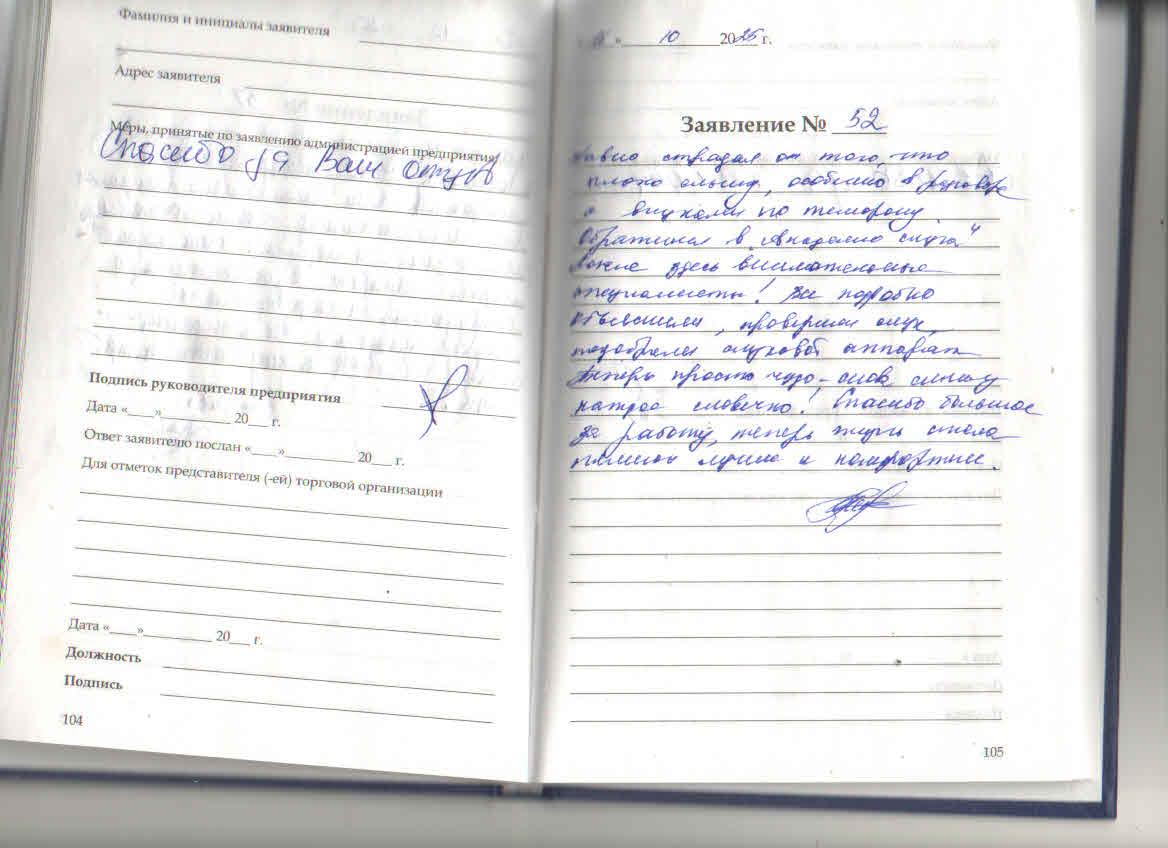 Фамилия и инициалы заявителя
Адрес заявителя
Меры, принятые по заявлению администрацией предприятия
Спасибо за Ваш отзыв
Подпись руководителя предприятия
Дата «___»__________ 20___ г.
Ответ заявителю послан «___»__________ 20___ г.
Для отметок представителя (-ей) торговой организации
Дата «___»__________ 20___ г.
Должность
Подпись
104
» 10 2025 г.
Заявление № 52
Давно страдал от того, что
плохо слышу, особенно в разговоре
с внуками по телефону.
Обратился в „Академию слуха"
здесь внимательные
специалисты! Все подробно
объяснили, проверили слух,
подобрали слуховой аппарат
Теперь просто чудо - снова слышу
каждое словечко! Спасибо большое
за работу, теперь жизнь стала
намного лучше и комфортнее.
105